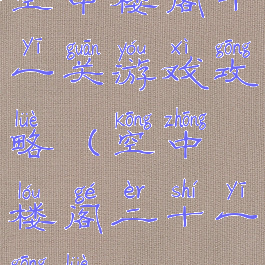 空中楼阁十
yī guān yóu xì gōng
一关游戏攻
lüè kōng zhōng
略（空中
lóu gé èr shí yī
楼阁二十一
gōng lüè